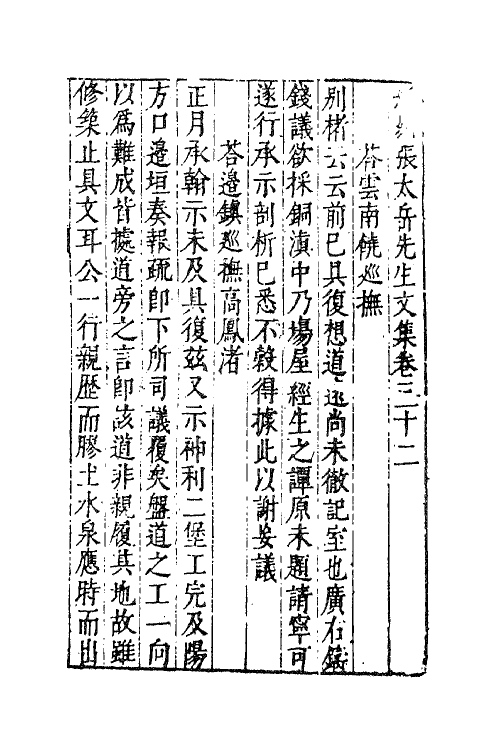 張太岳先生文集卷三十二
荅雲南饒巡撫
别楮云云前已具復想道遠尚未徹記室也廣右鑄
錢議欲採銅滇中乃塲屋經生之譚原未題請寧可
遂行承示剖析已悉不穀得據此以謝妄議
荅邉鎮巡撫高鳳渚
正月承翰示未及具復兹又示神利二堡工完及陽
方口邉垣奏報疏即下所司議覆矣盤道之工一向
以爲難成皆據道旁之言即該道非親履其地故雖
修築止具文耳公一行親歴而膠土水泉應時而出